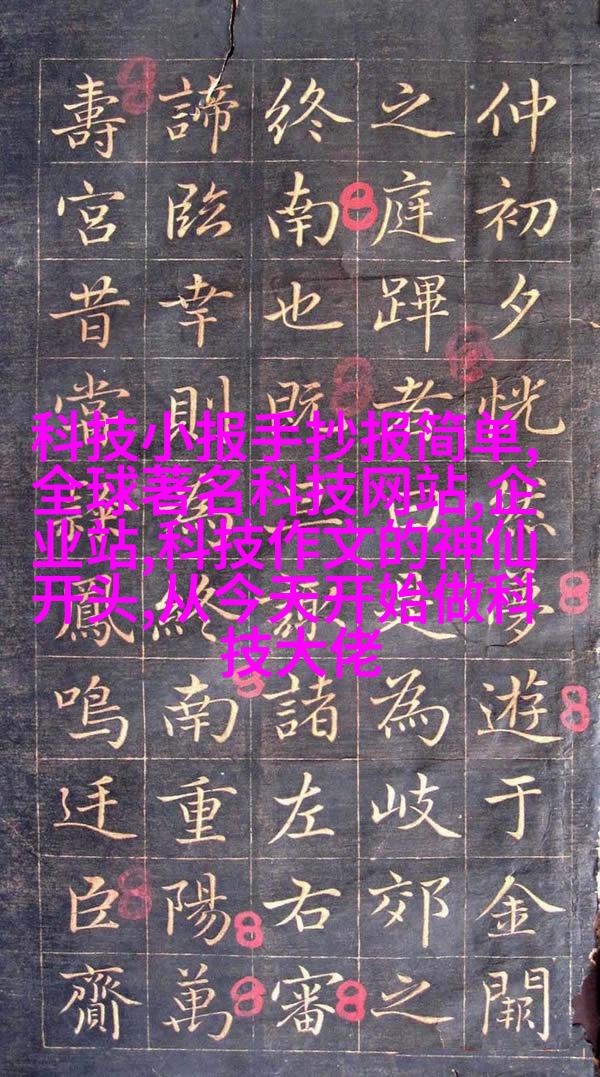 科技小报手抄报简单,
全球著名科技网站,企
业站,科技作文的神仙
开头,从今天开始做科
技大佬
仲初夕恍夢遊于金闕
之庭蹕者為岐郊之
終南也既旦諸左右審
諦臨幸則為終南重陽萬
壽宮昔嘗鳳鳴廷臣齎